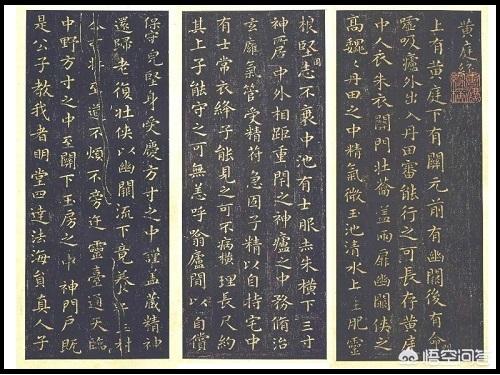 黃庭經
上有黃庭下有關元前有幽闕後有命
噓吸廬外出入丹田審能行之可長存黃庭
中人衣朱衣關門壯籥蓋兩扉幽闕俠之
高魏魏丹田之中精氣微玉池清水上生肥靈
根堅志不衰中池有士服赤朱橫下三寸
神所居中外相距重閉之神廬之中務脩治
玄膺氣管受精符急固子精以自持宅中
有士常衣絳子能見之可不病橫理長尺約
其上子能守之可無恙呼噏廬間以自償
保守完堅身受慶方寸之中謹蓋藏精神
還歸老復壯俠以幽闕流下竟養
至道不煩不旁迕靈臺通天臨
中野方寸之中至關下玉房之中神門戶既
是公子教我者明堂四達法海員真人子
悟空问答